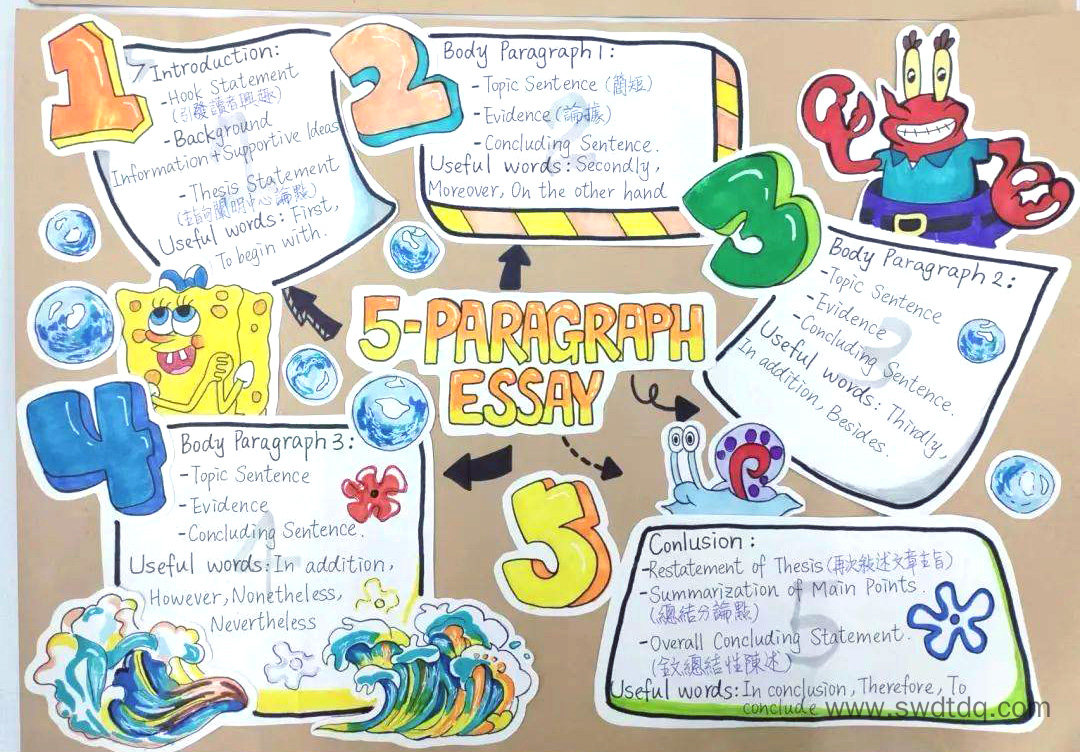 1
Introduction:
-Hook Statement
(引發讀者興趣)
-Background
Information+Supportive Ideas
-Thesis Statement
闡明中心論點)
Useful words: First,
To begin with.
2
Body Paragraph 1:
-Topic Sentence (簡短)
-Evidence (論據)
-Concluding Sentence.
Useful words: Secondly,
Moreover, On the other hand
3
Body Paragraph 2:
-Topic Sentence
-Evidence
-Concluding Sentence.
Useful words: Thirdly,
In addition, Besides.
5-PARAGRAPH
ESSAY
4
Body Paragraph 3:
-Topic Sentence
-Evidence
-Concluding Sentence.
Useful words: In addition,
However, Nonetheless,
Nevertheless
5
Conlusion:
-Restatement of Thesis (再次敘述文章主旨)
-Summarization of Main Points.
(總結分論點)
-Overall Concluding Statement.
總結性陳述)
Useful words: In conclusion, Therefore, To
conclude
www.swdtdq.com